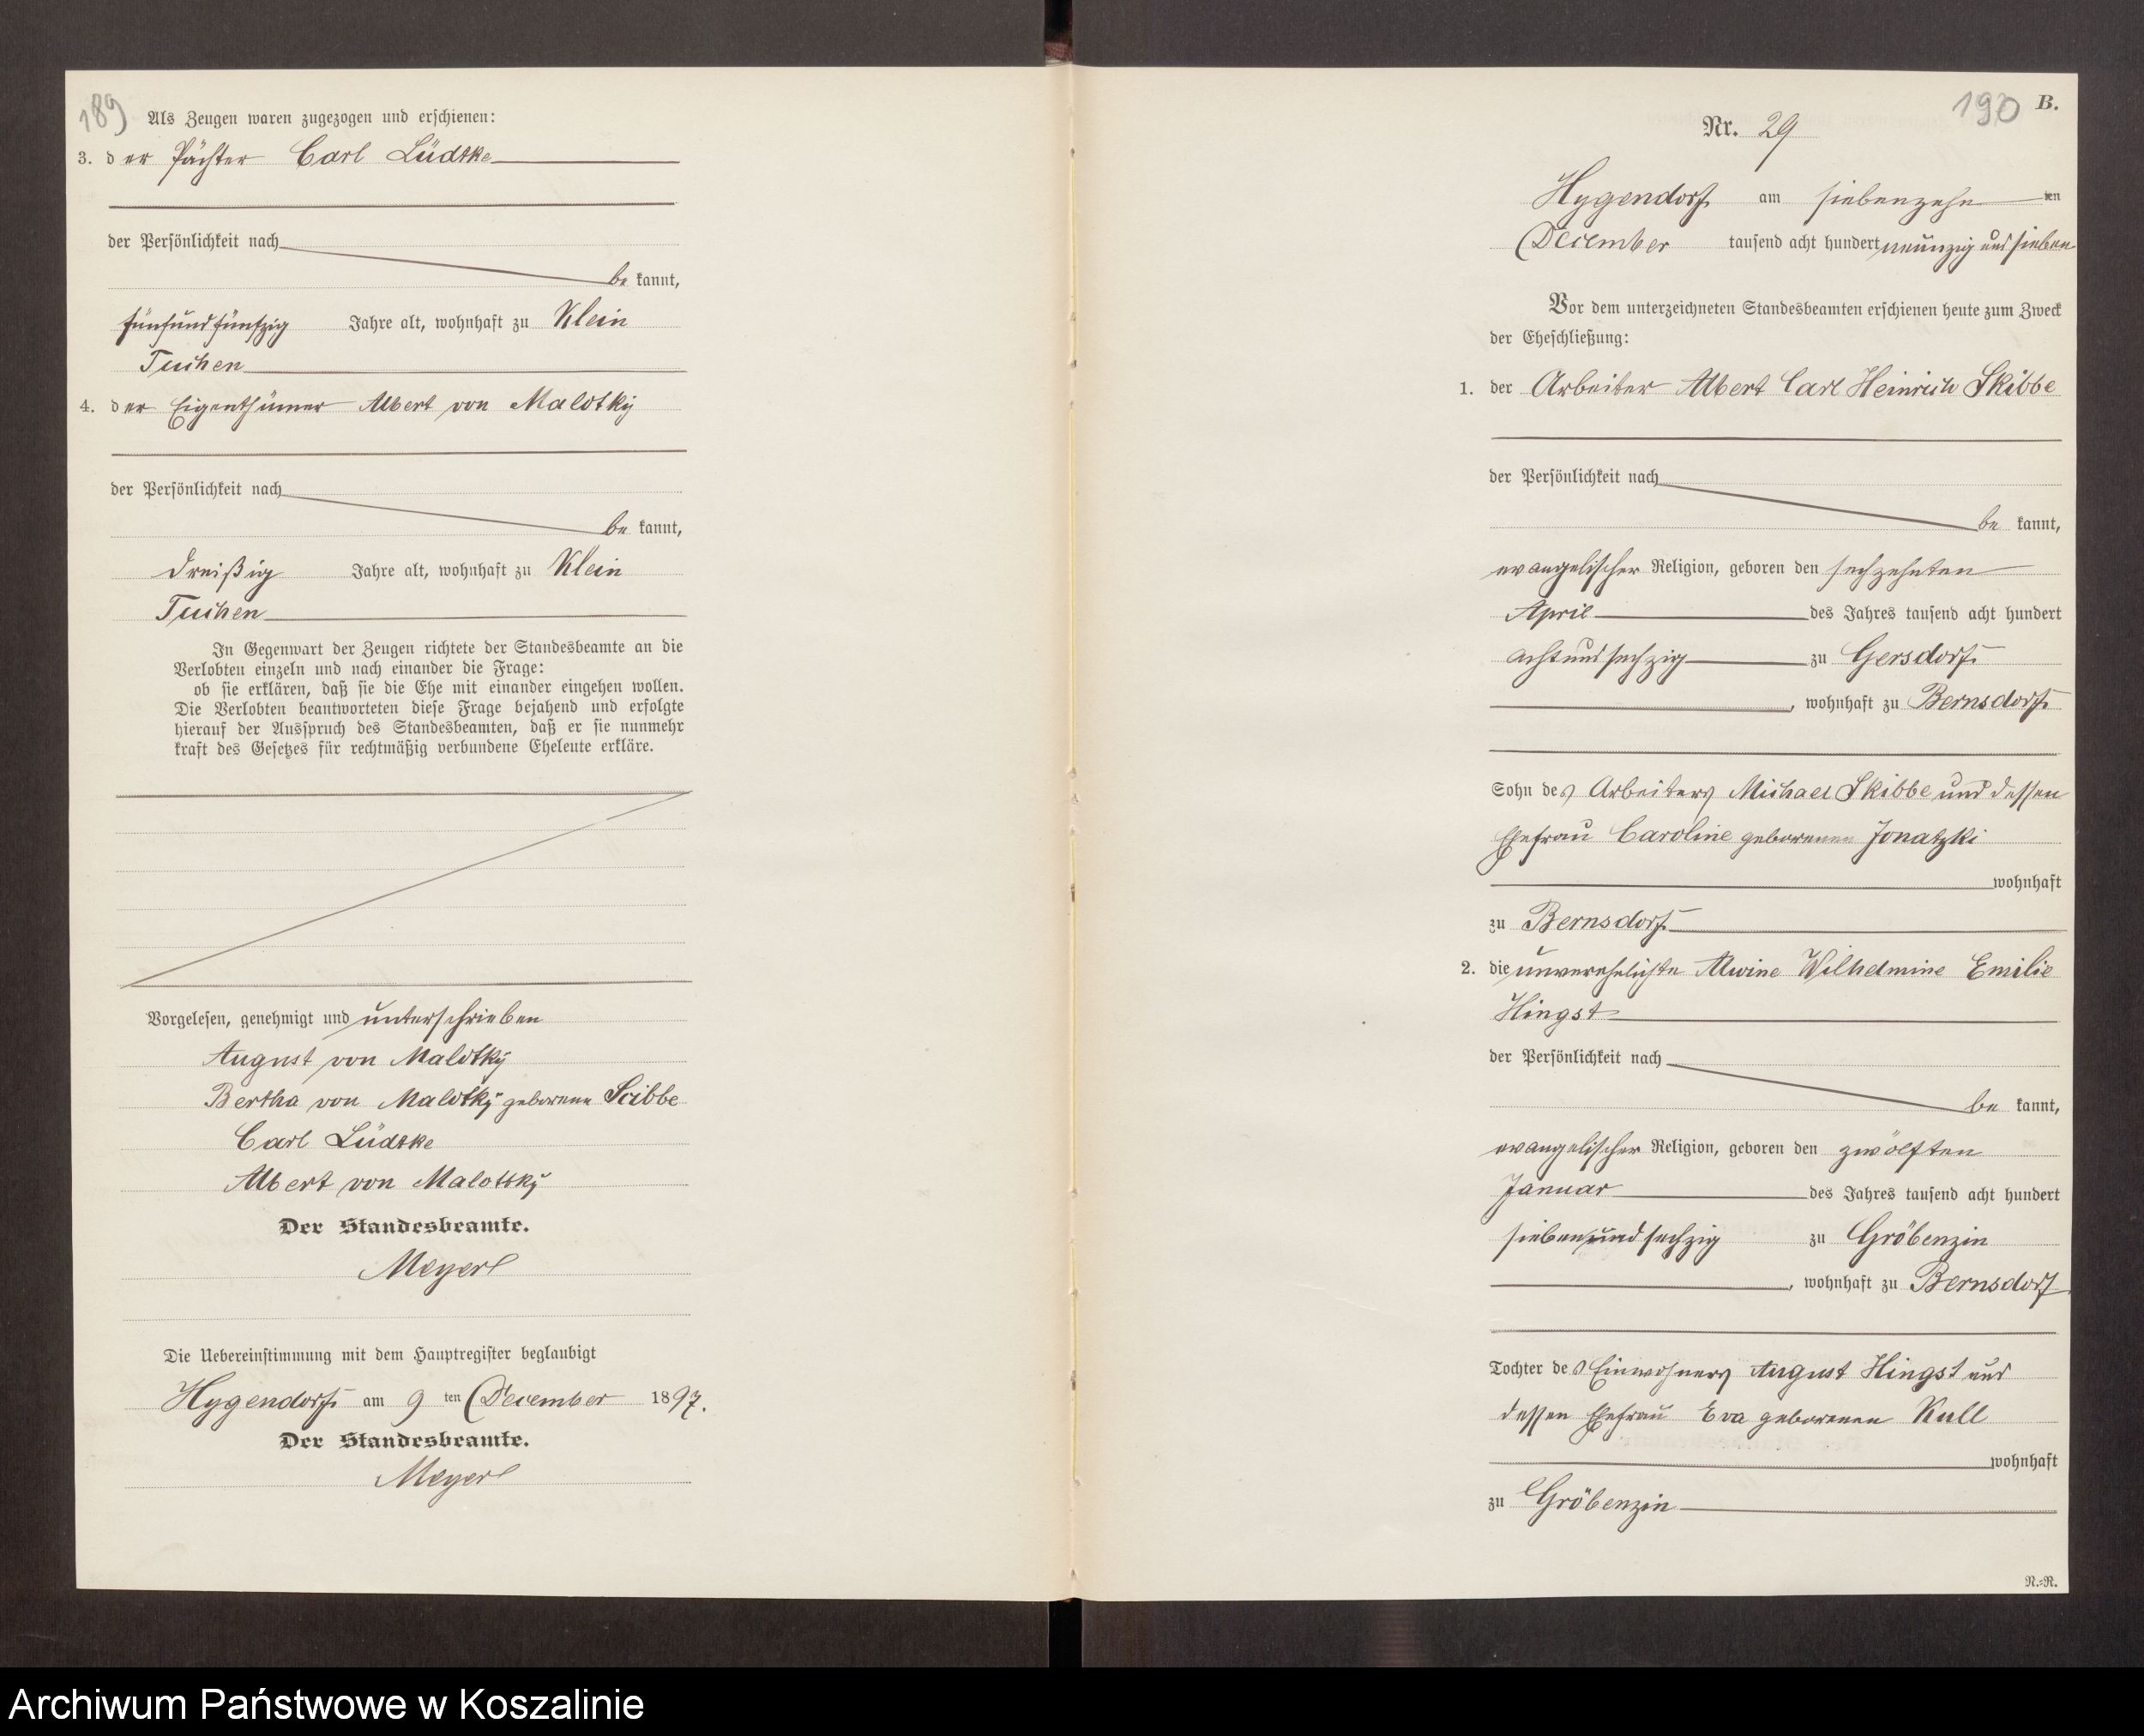 189
Als Zeugen waren zugezogen und erschienen:
3. der Pächter Carl Lüdtke
der Persönlichkeit nach
be kannt,
fünfundfünfzig Jahre alt, wohnhaft zu Klein
Tuchen
4. der Eigenthümer Albert von Malotky
der Persönlichkeit nach
be kannt,
dreißig Jahre alt, wohnhaft zu Klein
Tuchen
In Gegenwart der Zeugen richtete der Standesbeamte an die
Verlobten einzeln und nach einander die Frage:
ob sie erklären, daß sie die Ehe mit einander eingehen wollen.
Die Verlobten beantworteten diese Frage bejahend und erfolgte
hierauf der Ausspruch des Standesbeamten, daß er sie nunmehr
kraft des Gesetzes für rechtmäßig verbundene Eheleute erkläre.
Vorgelesen, genehmigt und unterschrieben
August von Malotky
Bertha von Malotky geborene Scibbe
Carl Lüdtke
Albert von Malottky
Der Standesbeamte.
Meyer
Die Uebereinstimmung mit dem Hauptregister beglaubigt
Hygendorf am 9 ten December 1897.
Der Standesbeamte.
Meyer
190 B.
Nr. 29
Hygendorf am siebenzehn ten
December tausend acht hundert neunzig und sieben
Vor dem unterzeichneten Standesbeamten erschienen heute zum Zweck
der Eheschließung:
1. der Arbeiter Albert Carl Heinrich Skibbe
der Persönlichkeit nach
be kannt,
evangelischer Religion, geboren den sechzehnten
April des Jahres tausend acht hundert
achtundsechzig zu Gersdorf
, wohnhaft zu Bernsdorf
Sohn des Arbeiters Michael Skibbe und dessen
Ehefrau Caroline geborenen Jonatzki
wohnhaft
zu Bernsdorf
2. die unverehelichte Alwine Wilhelmine Emilie
Hingst
der Persönlichkeit nach
be kannt,
evangelischer Religion, geboren den zwölften
Januar des Jahres tausend acht hundert
siebenundsechzig zu Gröbenzin
, wohnhaft zu Bernsdorf
Tochter des Einwohners August Hingst und
dessen Ehefrau Eva geborenen Kull
wohnhaft
zu Gröbenzin
N.=R.
Archiwum Państwowe w Koszalinie